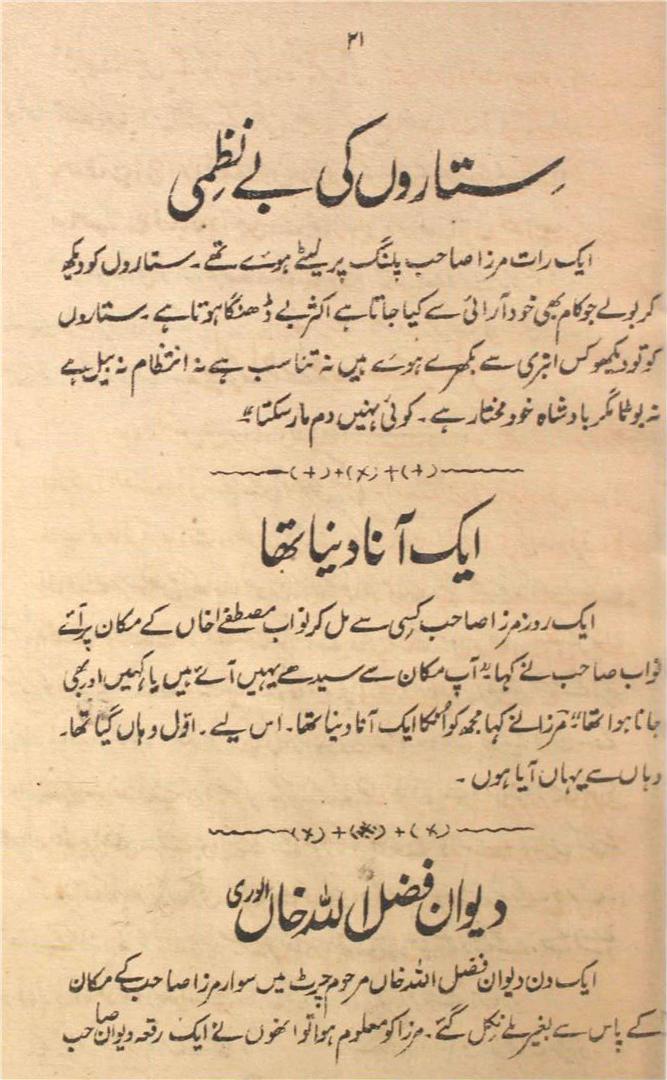 ۲۱
ستاروں کی بے نظمی
ایک رات مرزا صاحب پلنگ پر لیٹے ہوے تھے۔ ستاروں کو دیکھ
کر بولے جو کام بھی خود آرائی سے کیا جاتا ہے اکثر بے ڈھنگا ہوتا ہے۔ ستاروں
کو تو دیکھو کس ابتری سے بکھرے ہوے ہیں نہ تناسب ہے نہ انتظام نہ بیل ہے
نہ بوٹا مگر بادشاہ خود مختار ہے۔ کوئی نہیں دم مار سکتا"۔
(+)+(×)+(+)
ایک آنا دینا تھا
ایک روز مرزا صاحب کسی سے مل کر نواب مصطفےٰ خاں کے مکان پر آئے
نواب صاحب نے کہا "آپ مکان سے سیدھے یہیں آئے ہیں یا کہیں اور بھی
جانا ہوا تھا" مرزا نے کہا مجھ کو اُنکا ایک آنا دینا تھا۔ اس لیے۔ اوّل وہاں گیا تھا۔
وہاں سے یہاں آیا ہوں۔
(×)+(×)+(×)
دیوان فضل اللہ خاں الوری
ایک دن دیوان فضل اللہ خاں مرحوم چرٹ میں سوار مرزا صاحب کے مکان
کے پاس سے بغیر ملے نکل گئے۔ مرزا کو معلوم ہوا تو انھوں نے ایک رقعہ دیوان صاحب